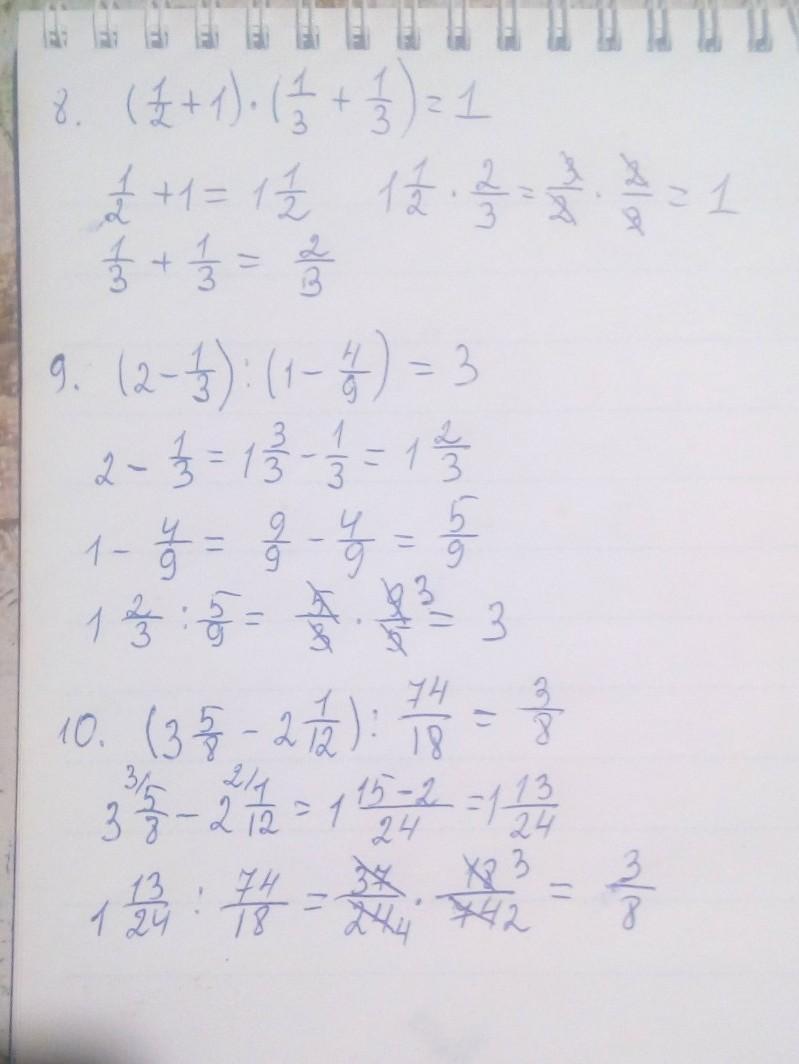 8. (1/2 + 1) · (1/3 + 1/3) = 1
1/2 + 1 = 1 1/2   1 1/2 · 2/3 = 3/2 · 2/3 = 1
1/3 + 1/3 = 2/3
9. (2 - 1/3) : (1 - 4/9) = 3
2 - 1/3 = 1 3/3 - 1/3 = 1 2/3
1 - 4/9 = 9/9 - 4/9 = 5/9
1 2/3 : 5/9 = 5/3 · 9 3/5 = 3
10. (3 5/8 - 2 1/12) : 74/18 = 3/8
3 3/ 5/8 - 2 2/ 1/12 = 1 15-2/24 = 1 13/24
1 13/24 : 74/18 = 37/24 4 · 18 3/74 2 = 3/8